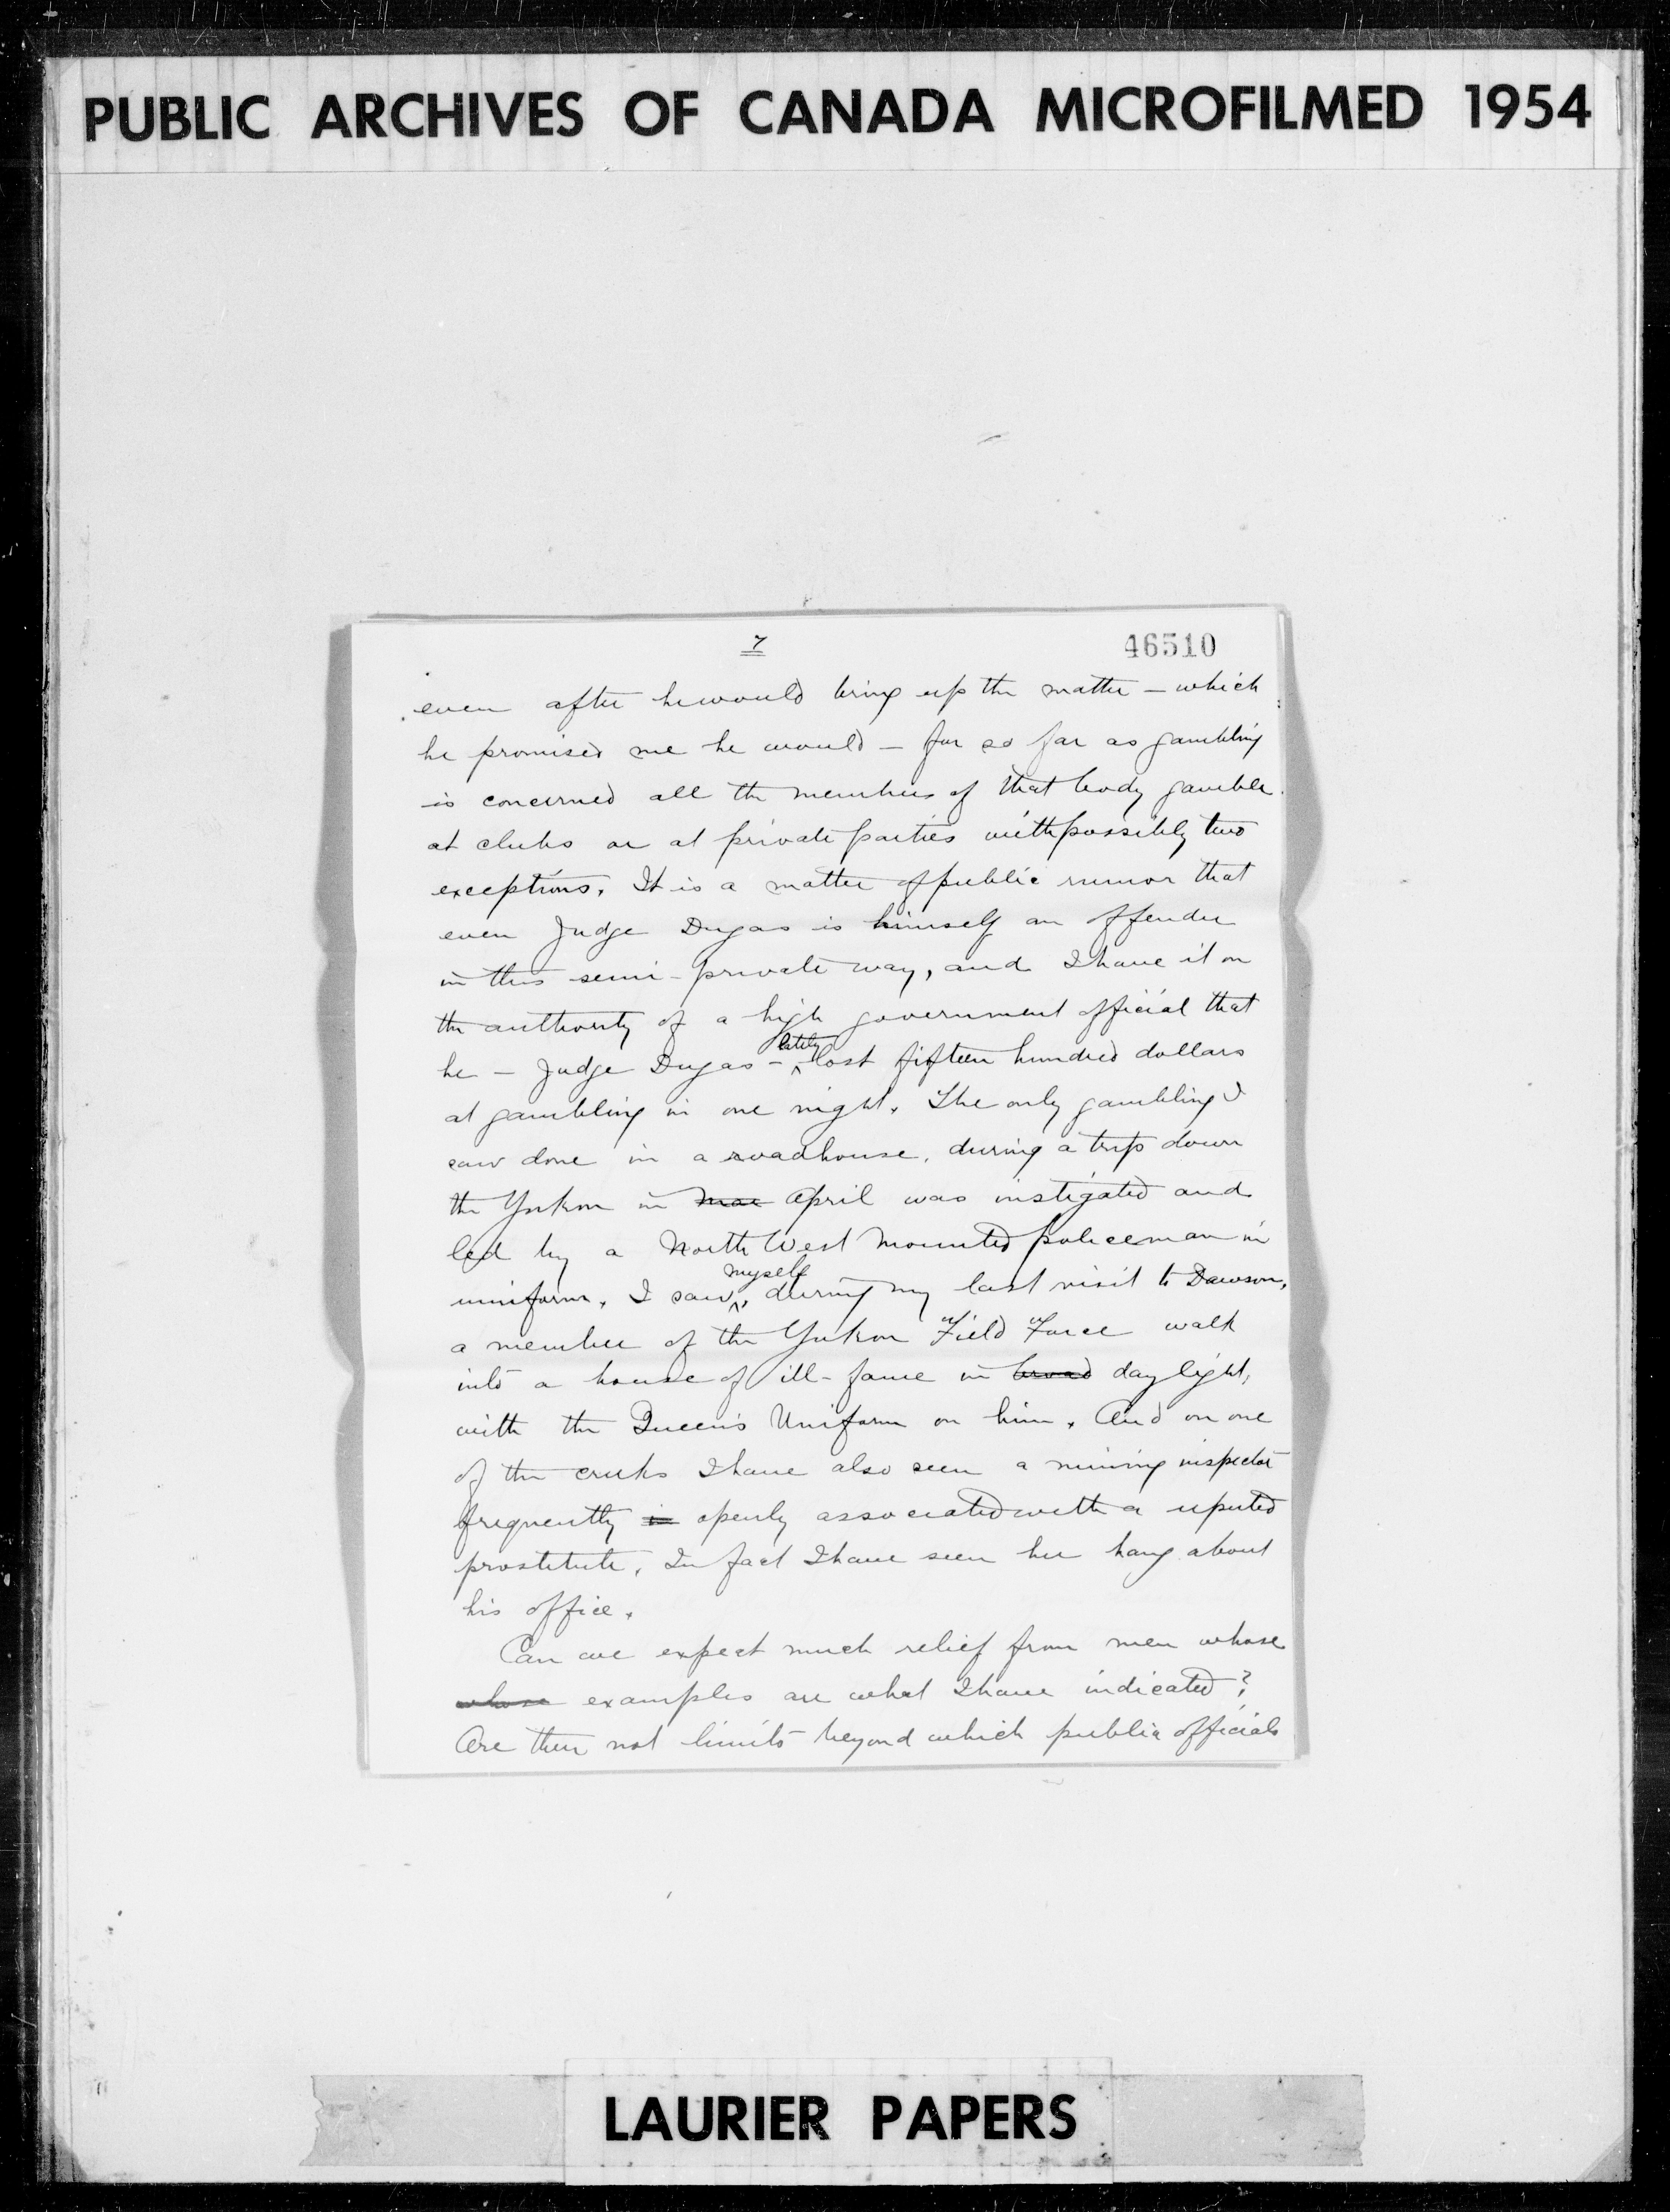 PUBLIC ARCHIVES OF CANADA MICROFILMED 1954
7
46510
even after he would bring up the matter – which
he promised me he would – for so far as gambling
is concerned all the members of that body gamble
at clubs or at private parties with possibly two
exceptions. It is a matter of public rumor that
even Judge Dugas is himself an offender
in this semi-private way, and I have it on
the authority of a high government official that
he – Judge Dugas – lately lost fifteen hundred dollars
at gambling in one night. The only gambling I
saw done in a roadhouse, during a trip down
the Yukon in Mar April was instigated and
led by a North West Mounted policeman in
uniform. I saw myself, during my last visit to Dawson,
a member of the Yukon Field Force walk
into a house of ill-fame in broad daylight,
with the Queen's Uniform on him. And on one
of the creeks I have also seen a mining inspector
frequently in openly associated with a reputed
prostitute. In fact I have seen her hang about
his office.
Can we expect much relief from men whose
whose examples are what I have indicated?
Are there not limits beyond which public officials
LAURIER PAPERS